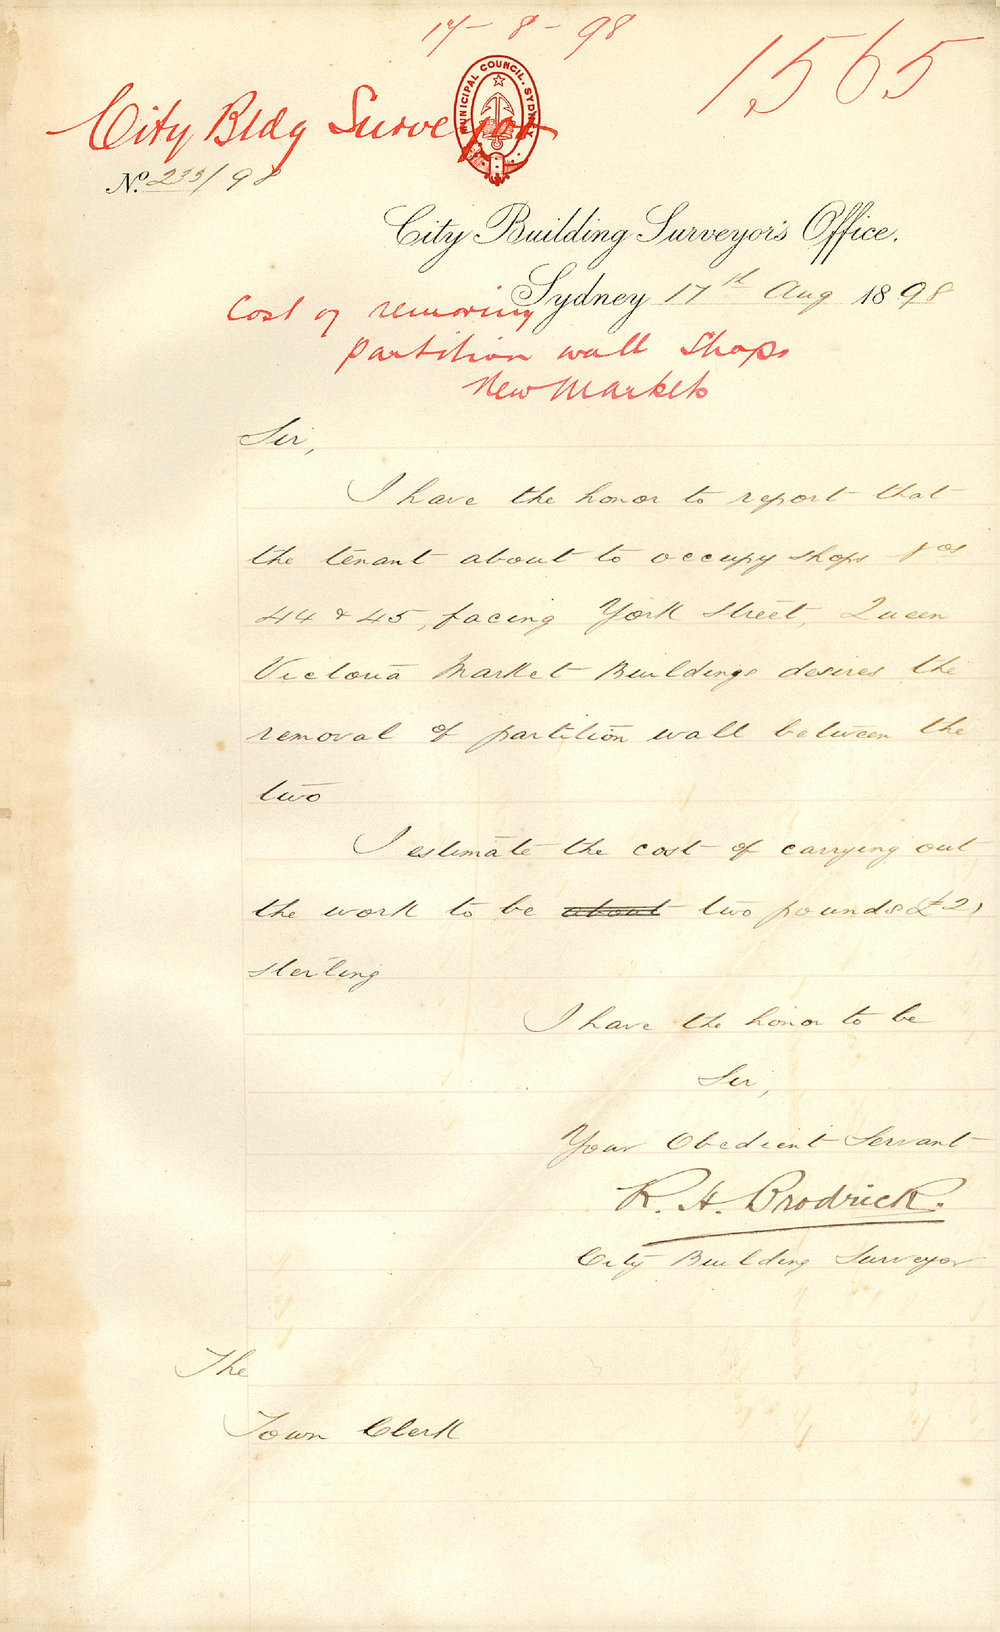 17-8-98
1565
MUNICIPAL COUNCIL. SYDNEY
City Bldg Surveyor
No. 233/98
City Building Surveyor's Office.
Sydney 17th Aug 1898
Cost of removing
partition wall Shops
New Markets
Sir,
I have the honor to report that
the tenant about to occupy shops Nos
44 & 45, facing York Street, Queen
Victoria Market Buildings desires the
removal of partition wall between the
two
I estimate the cost of carrying out
the work to be about two pounds £2,
sterling
I have the honor to be
Sir,
Your Obedient Servant
R. H. Brodrick.
City Building Surveyor
The
Town Clerk